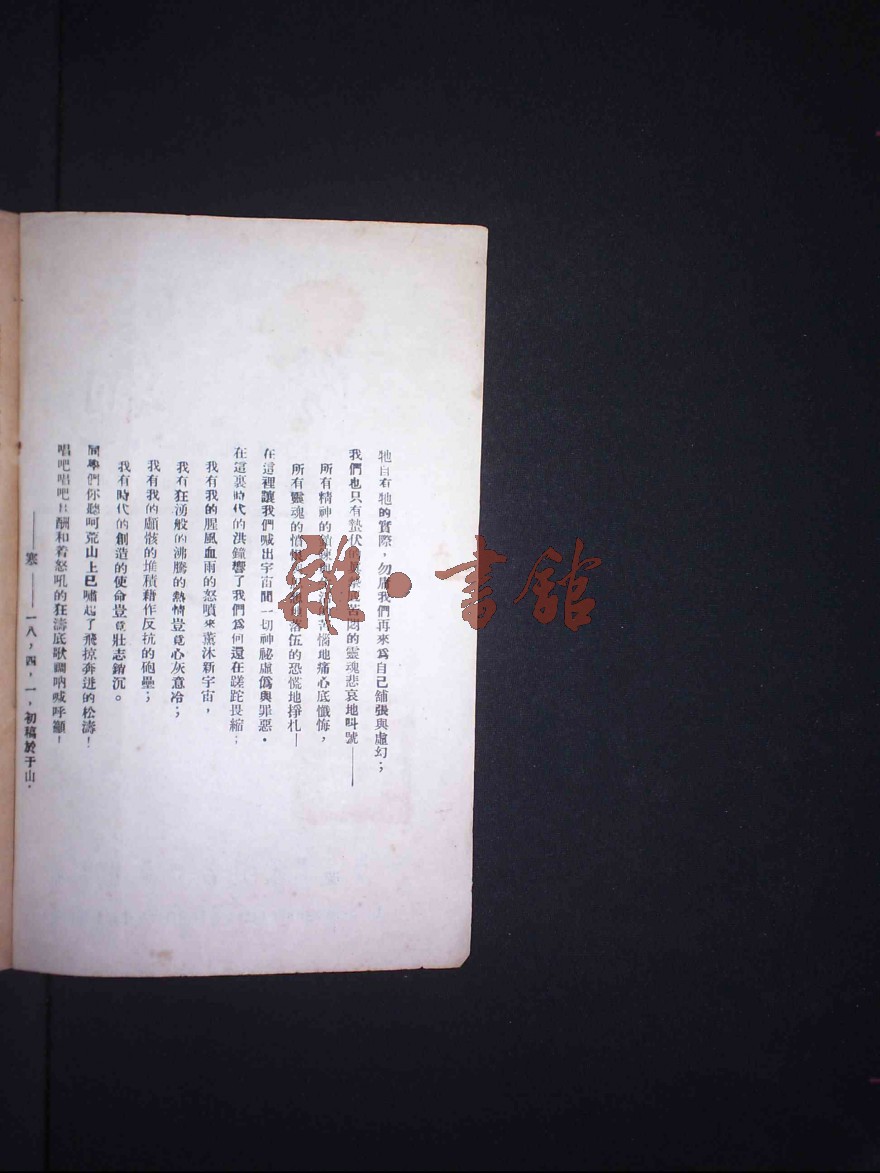 牠自有牠的實際，勿庸我們再來爲自己舖張與虛幻；
我們也只有蟄伏的苦悶的靈魂悲哀地叫號——
所有精神的苦惱地痛心底懺悔，
所有靈魂的落伍的恐慌地掙札—
在這裡讓我們喊出宇宙間一切神祕虛僞與罪惡．
在這裏時代的洪鐘響了我們爲何還在蹉跎畏縮；
我有我的腥風血雨的怒噴來薰沐新宇宙，
我有狂湧般的沸騰的熱情豈竟心灰意冷；
我有我的顱骸的堆積藉作反抗的砲壘；
我有時代的創造的使命豈竟壯志銷沉。
同學們你聽呵荒山上已嘯起了飛掠奔迸的松濤！
唱吧唱吧且酬和着怒吼的狂濤底歌調吶喊呼籲！
——寒——一八，四，一，初稿於于山．
雜·書館